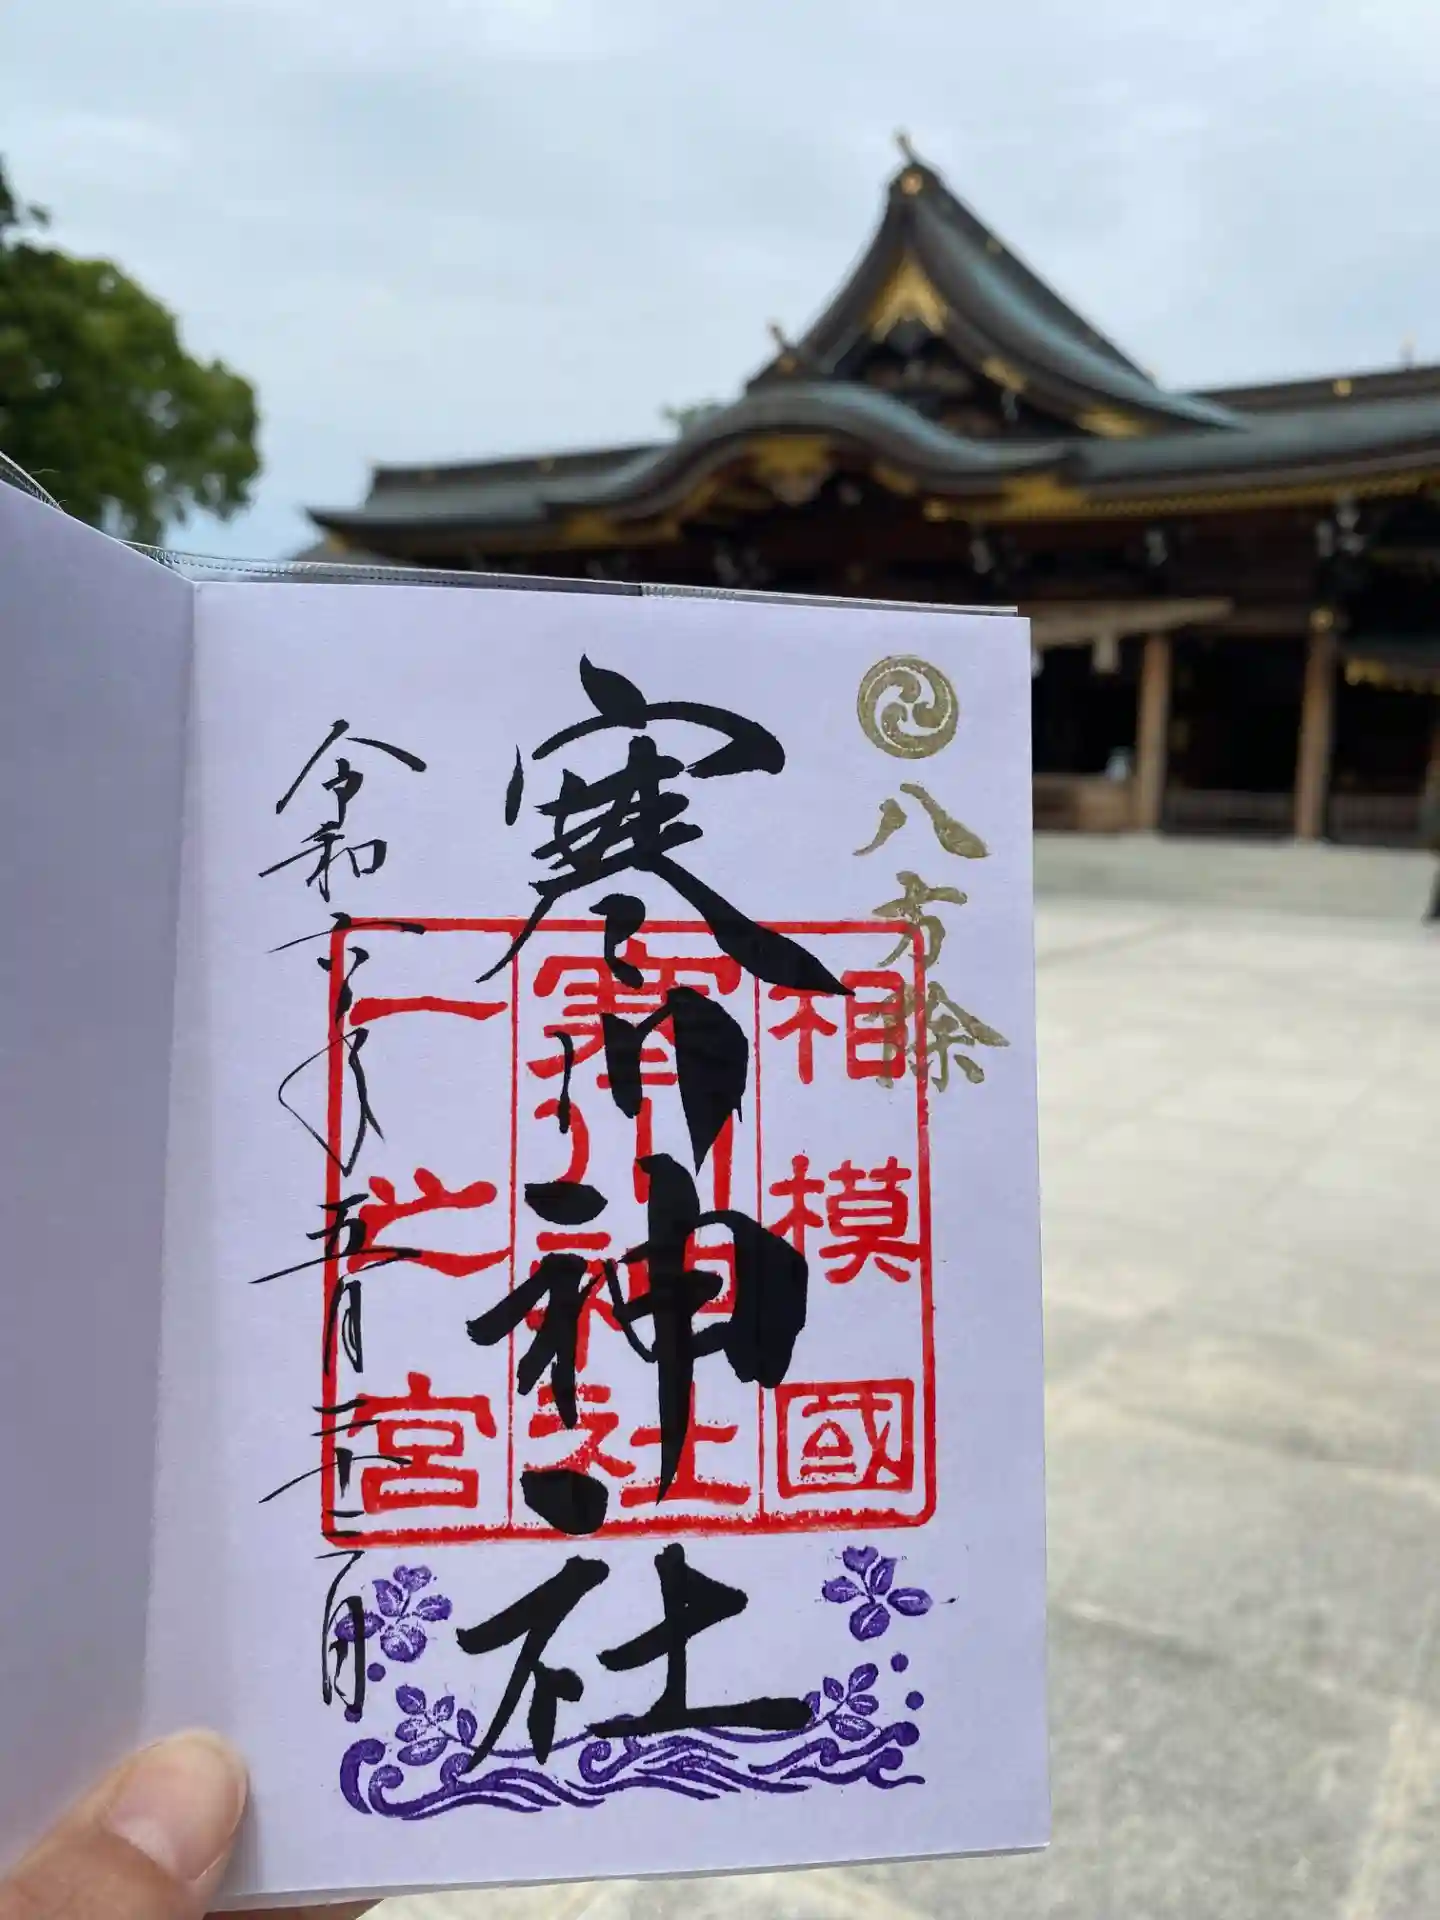 八方除
相模國
寒川神社
一之宮
寒川神社
令和六年五月二十二日